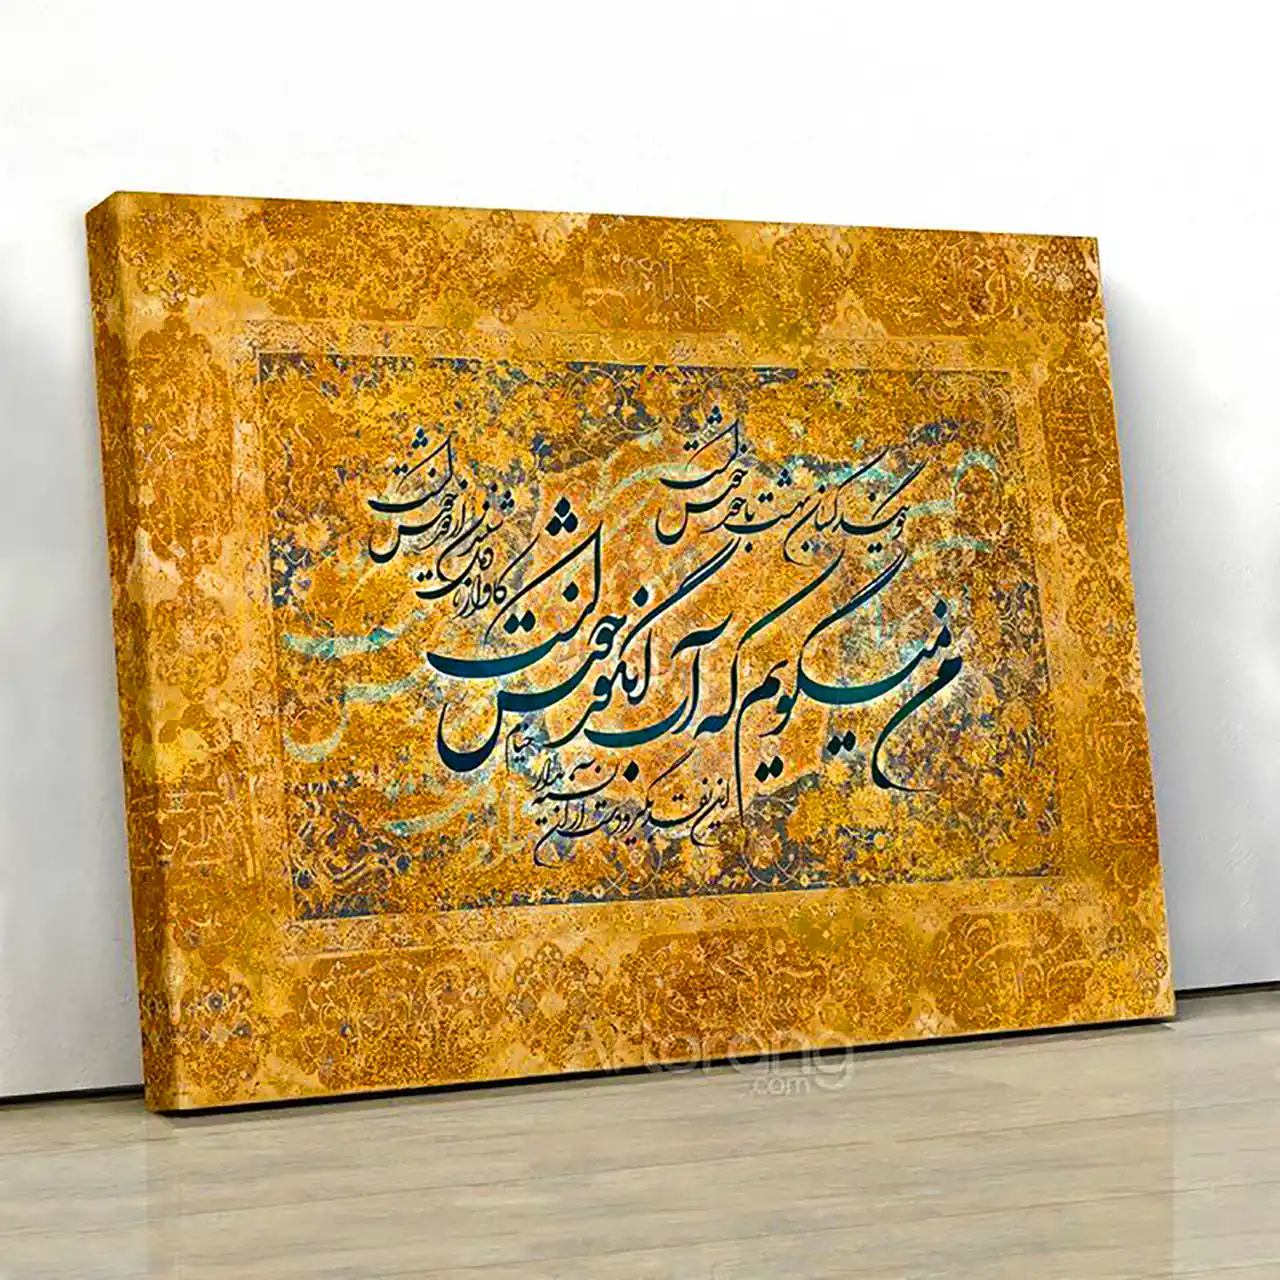 گویند کسان بهشت با حور خوشست
من میگویم که آب انگور خوشست
این نقد بگیر و دست از آن نسیه بدار
کاواز دهل شنیدن از دور خوشست
خیام
Artorang
.com